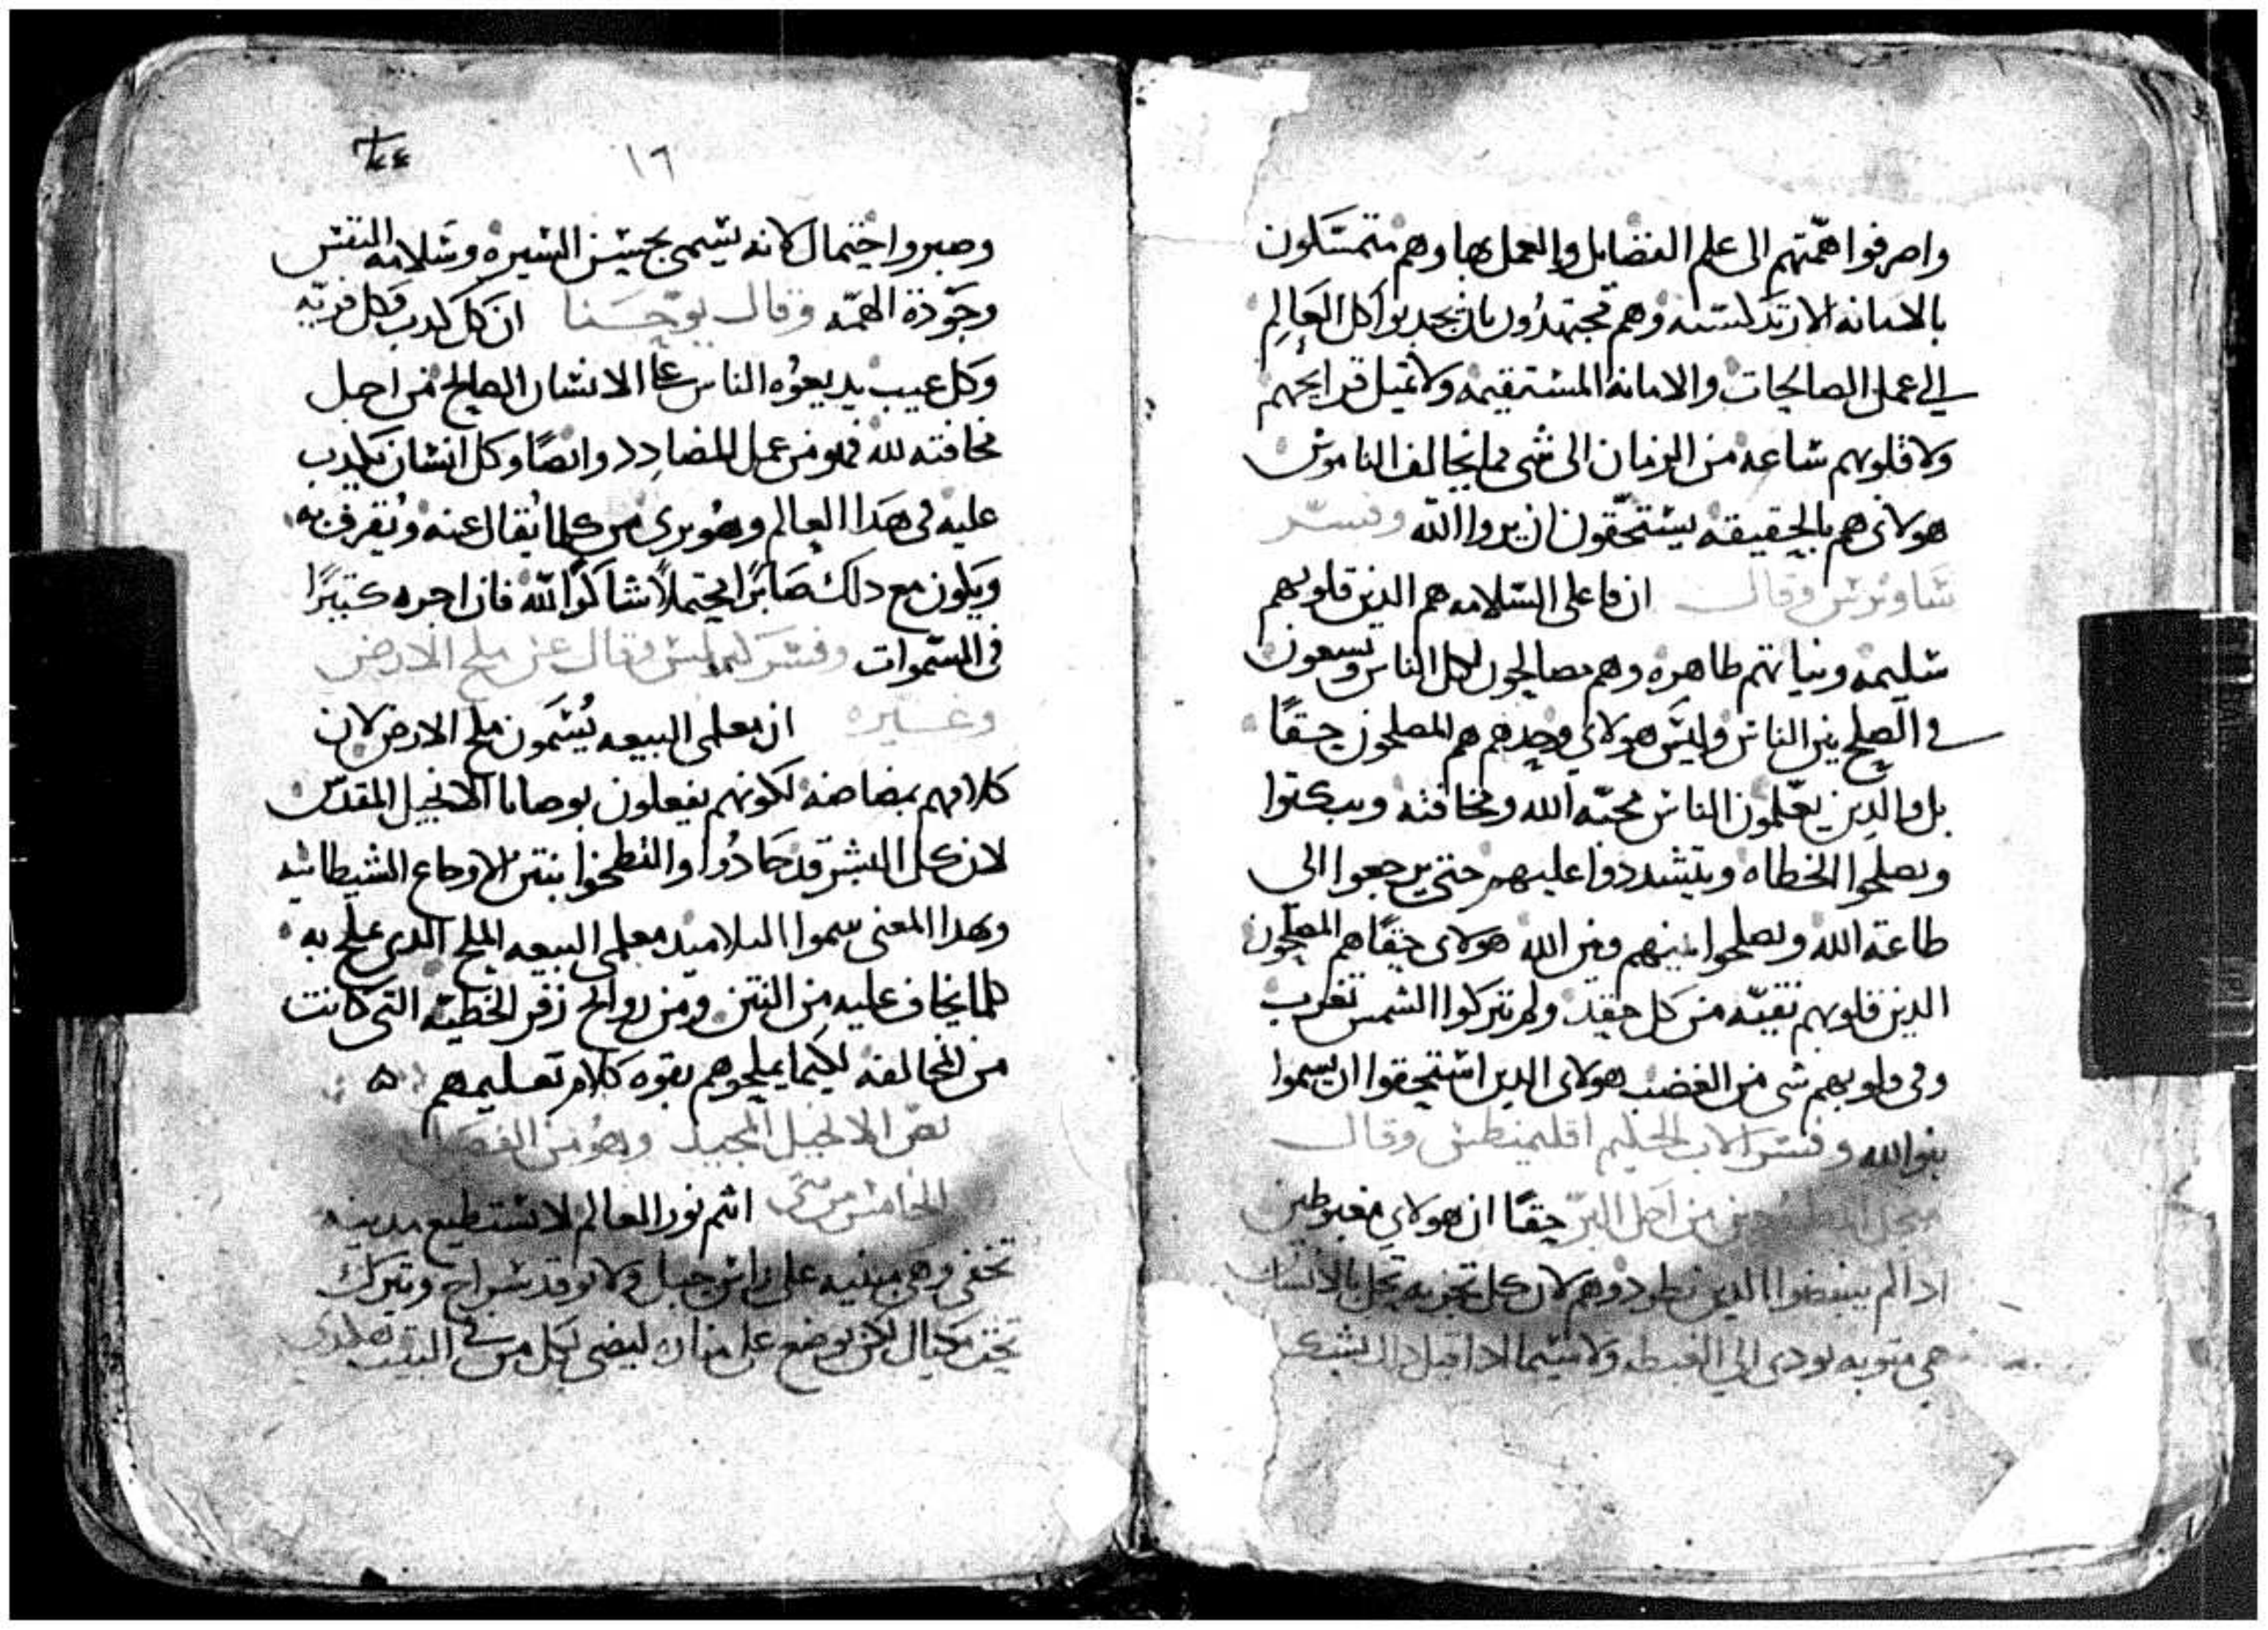 واصرفوا همّتهم الى علم الفضايل والعمل بها وهم متمسكون
بالامانه الارتدكسيه وهم مجتهدون بان يجدبوا كل العالم
الى عمل الصالحات والامانه المستقيمه ولا تميل قرايحهم
ولا قلوبهم ساعه من الزمان الى شى مما يخالف الناموس
هولاى هم بالحقيقه يستحقون ان يروا الله وفسر
ساويرس وقال ان فاعلى السلامه هم الدين قلوبهم
سليمه ونياتهم طاهره وهم مصالحون لكل الناس ويسعون
فى الصلح بين الناس وليس هولاى وحدهم هم المصلحون حقًا
بل والدين يعلمون الناس محبّه الله ومخافته ويبكتوا
ويصلحوا الخطاه ويتشددوا عليهم حتى يرجعوا الى
طاعة الله ويصلحوا بينهم وبين الله هولاى حقًا هم المصلحون
الدين قلوبهم نقيّه من كل حقد ولم يتركوا الشمس تغرب
وفى قلوبهم شى من الغضب هولاى الدين استحقوا ان يسموا
بنوا الله وفسر الاب الحكيم اقليمنطس وقال
من اجل البرّ حقًا ان هولاي مغبوطين
ادا لم يبغضوا الدين يطردوهم لان كل تجربه تحل بالانسان
هى متوبه تودى الى الغبطه ولا سيما ادا قبل دلك بشكر
١٦
وصبر واحتمال لانه يسمى بحسن السيره وسلامه النفس
وجودة الهمّه وقال يوحنا ان كل كدب وكل فريّه
وكل عيب يديعوه الناس على الانسان الصالح من اجل
مخافته لله فهو من عمل المضادد وايضًا وكل انسان يكدب
عليه فى هدا العالم وهو برى من كلما يُقال عنه ويُقرف به
ويكون مع دلك صابرًا محتملاً شاكرًا لله فان اجره كتيرًا
فى السموات وفسر كيرلس وقال عن ملح الارض
وغيره ان معلمى البيعه يُسَمون ملح الارض لان
كلامهم بمضاضه لكونهم يفعلون بوصايا الانجيل المقدس
لان كل البشر قد حادُوا والتطخوا بنتن الاوجاع الشيطانيه
وبهدا المعنى سموا التلاميد معلمى البيعه الملح الدى يملح به
كلما يخاف عليه من النتن ومن روايح زفر الخطيه التى كانت
من المخالفه لكيما يملحوهم بقوه كلام تعليمهم ه
نص الانجيل المجيد وهو من الفصل
الخامس من متى انتم نور العالم لا تستطيع مدينه
تخفى وهى مبنيه على راس جبل ولا يوقد سراج ويترك
تحت مكيال لكن يوضع على مناره ليضى لكل من فى البيت